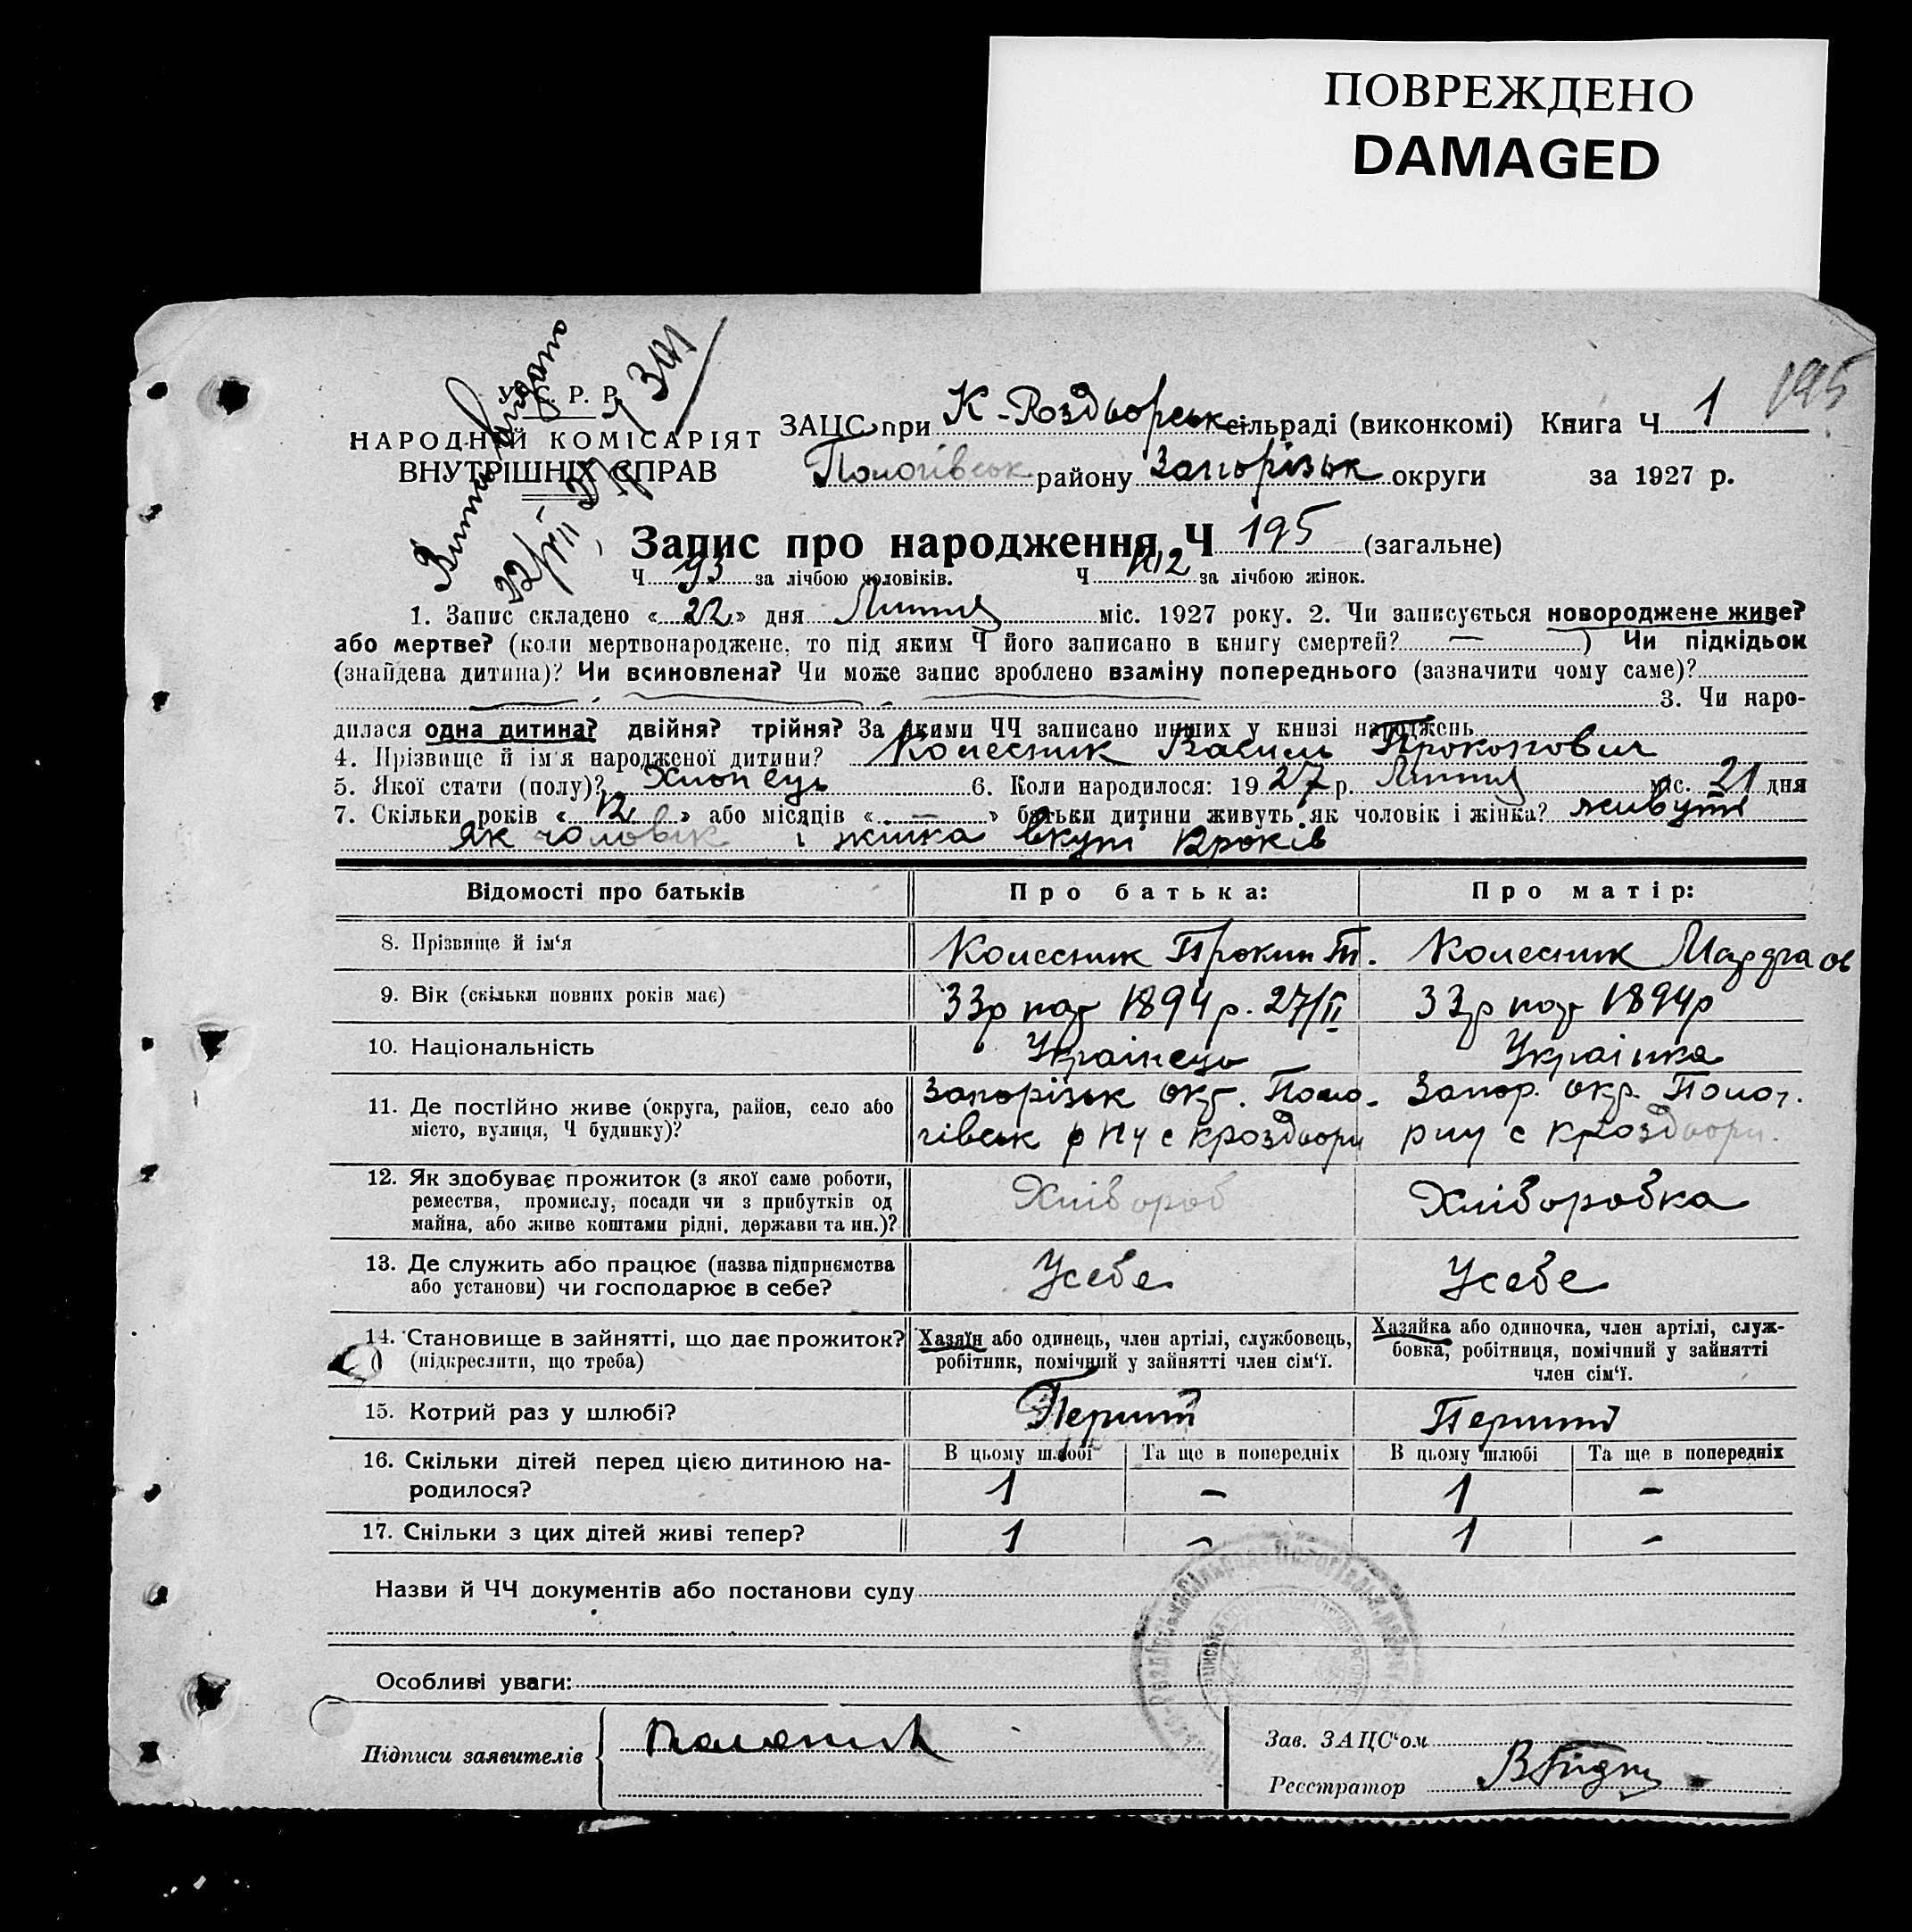 ПОВРЕЖДЕНО
DAMAGED
195
У. С. Р. Р.
НАРОДНІЙ КОМІСАРІЯТ
ВНУТРІШНІХ СПРАВ
Витяг видано
ЗАЦС при К-Роздорськ сільраді (виконкомі) Книга Ч 1
Пологівськ району Запорізьк округи за 1927 р.
Запис про народження Ч 195 (загальне)
Ч 93 за лічбою чоловіків. Ч 102 за лічбою жінок.
1. Запис складено «22» дня Липня міс. 1927 року. 2. Чи записується новороджене живе?
або мертве? (коли мертвонароджене, то під яким Ч його записано в книгу смертей? — ) Чи підкідьок
(знайдена дитина)? Чи всиновлена? Чи може запис зроблено взаміну попереднього (зазначити чому саме)?
3. Чи наро-
дилася одна дитина? двійня? трійня? За якими ЧЧ записано инших у книзі народжень
4. Прізвище й ім'я народженої дитини? Колесник Василь Прокопович
5. Якої стати (полу)? Хлопець 6. Коли народилося: 1927 р. Липня міс. 21 дня
7. Скільки років «12» або місяців « — » батьки дитини живуть як чоловік і жінка? живуть
як чоловік і жінка вкупі 12 років
Відомості про батьків Про батька: Про матір:
8. Прізвище й ім'я Колесник Прокип Т. Колесник
9. Вік (скільки повних років має) 33р нар 1894 р. 27/II 33р нар 1894р
10. Національність Українець Українка
11. Де постійно живе (округа, район, село або Запорізьк окр. Поло- Запор. окр. Полог.
місто, вулиця, Ч будинку)? гівськ р ну с Кроздори р ну с Кроздори.
12. Як здобуває прожиток (з якої саме роботи, Хлібороб Хліборобка
ремества, промислу, посади чи з прибутків од
майна, або живе коштами рідні, держави та ин.)?
13. Де служить або працює (назва підприємства Усебе Усебе
або установи) чи господарює в себе?
14. Становище в зайнятті, що дає прожиток? Хазяїн або одинець, член артілі, службовець, Хазяйка або одиночка, член артілі, служ-
(підкреслити, що треба) робітник, помічний у зайнятті член сім'ї. бовка, робітниця, помічний у зайнятті
член сім'ї.
15. Котрий раз у шлюбі? Перший Перший
16. Скільки дітей перед цією дитиною на- В цьому шлюбі Та ще в попередніх В цьому шлюбі Та ще в попередніх
родилося? 1 - 1 -
17. Скільки з цих дітей живі тепер? 1 - 1 -
Назви й ЧЧ документів або постанови суду
Особливі уваги:
Підписи заявителів
Зав. ЗАЦС'ом
Реєстратор